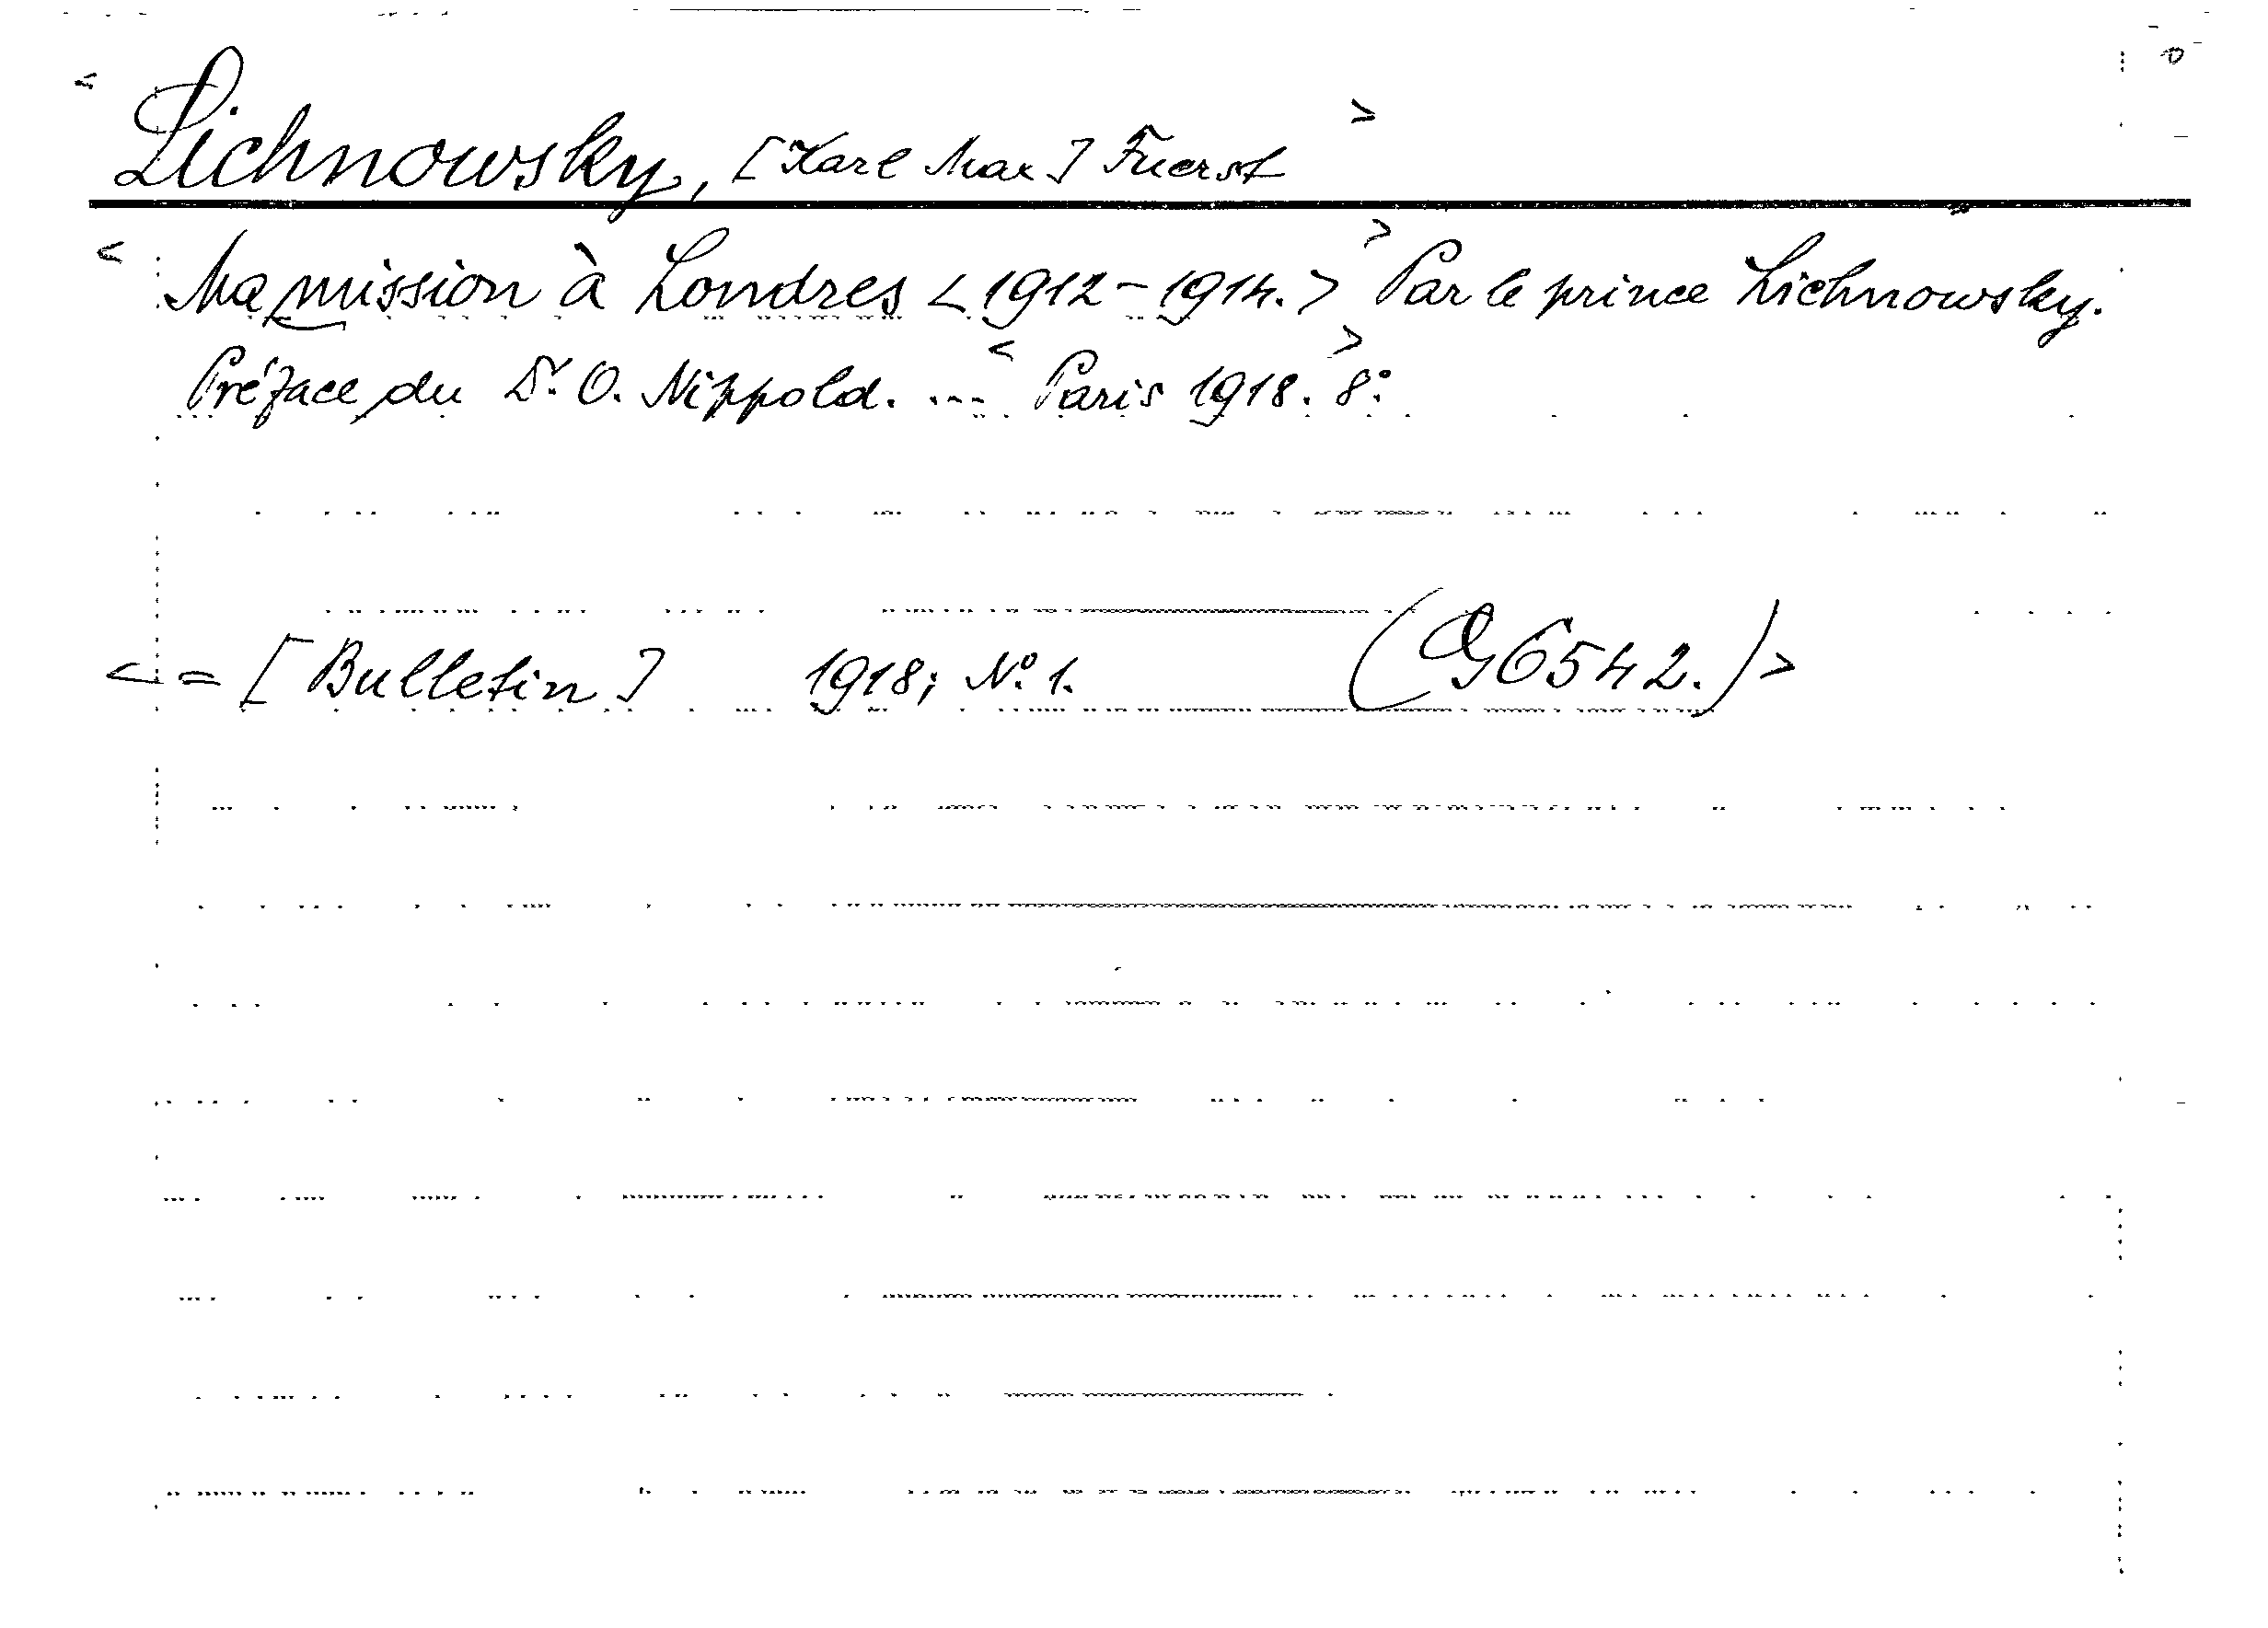 < Lichnowsky, [Karl Max] Fuerst >
< Ma mission à Londres <1912-1914.> > Par le prince Lichnowsky.
Préface du Dr. O. Nippold. ... < Paris 1918. > 8°.
< = [Bulletin] 1918; No. 1. (Og 6542.) >